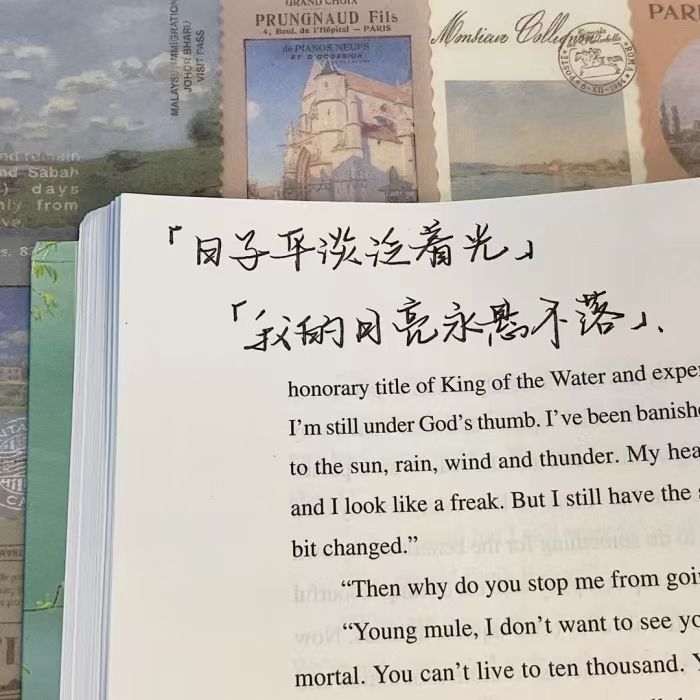 GRAND CHOIX
PRUNGNAUD Fils
4, Boul. de l'Hôpital — PARIS
de PIANOS NEUFS
ET D'OCCASION
Monsieur
PARI
MALAYSIA IMMIGRATION
JOHOR BHARU
VISIT PASS
Sabah
days
from
「日子平淡泛着光」
「我的月亮永悬不落」、
honorary title of King of the Water and expe
I'm still under God's thumb. I've been banishe
to the sun, rain, wind and thunder. My hea
and I look like a freak. But I still have the
bit changed."
"Then why do you stop me from goi
"Young mule, I don't want to see yo
mortal. You can't live to ten thousand. Y